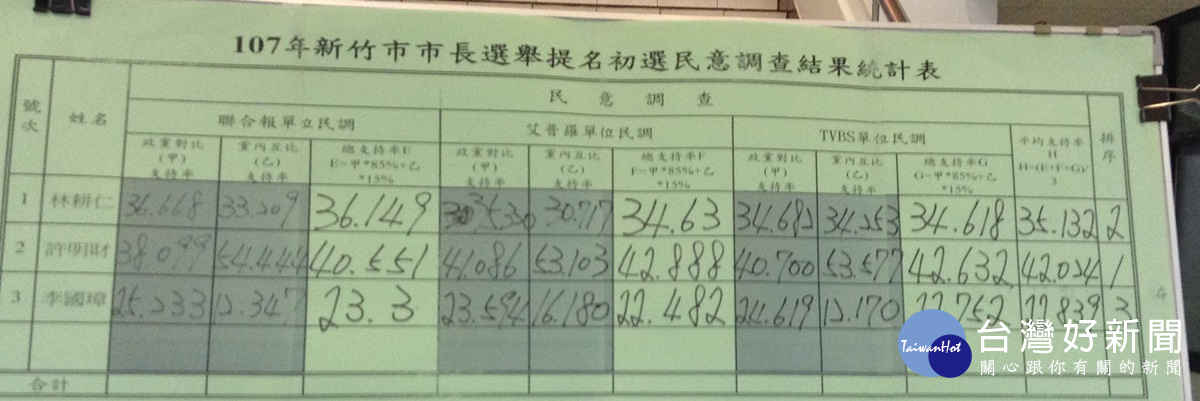 107年新竹市市長選舉提名初選民意調查結果統計表
號次 姓名 民意調查 排序
聯合報單位民調 艾普羅單位民調 TVBS單位民調 平均支持率 H H=(E+F+G)/3
政黨對比(甲)支持率 黨內互比(乙)支持率 總支持率E E=甲*85%+乙*15% 政黨對比(甲)支持率 黨內互比(乙)支持率 總支持率F F=甲*85%+乙*15% 政黨對比(甲)支持率 黨內互比(乙)支持率 總支持率G G=甲*85%+乙*15%
1 林耕仁 36.668 33.209 36.149 35.320 30.717 34.63 34.682 34.253 34.618 35.132 2
2 許明財 38.099 54.444 40.551 41.086 53.103 42.888 40.700 53.577 42.632 42.024 1
3 李國璋 25.233 12.347 23.3 23.594 16.180 22.482 24.619 12.170 22.752 22.839 3
合計
TaiwanHot 台灣好新聞
關心跟你有關的新聞